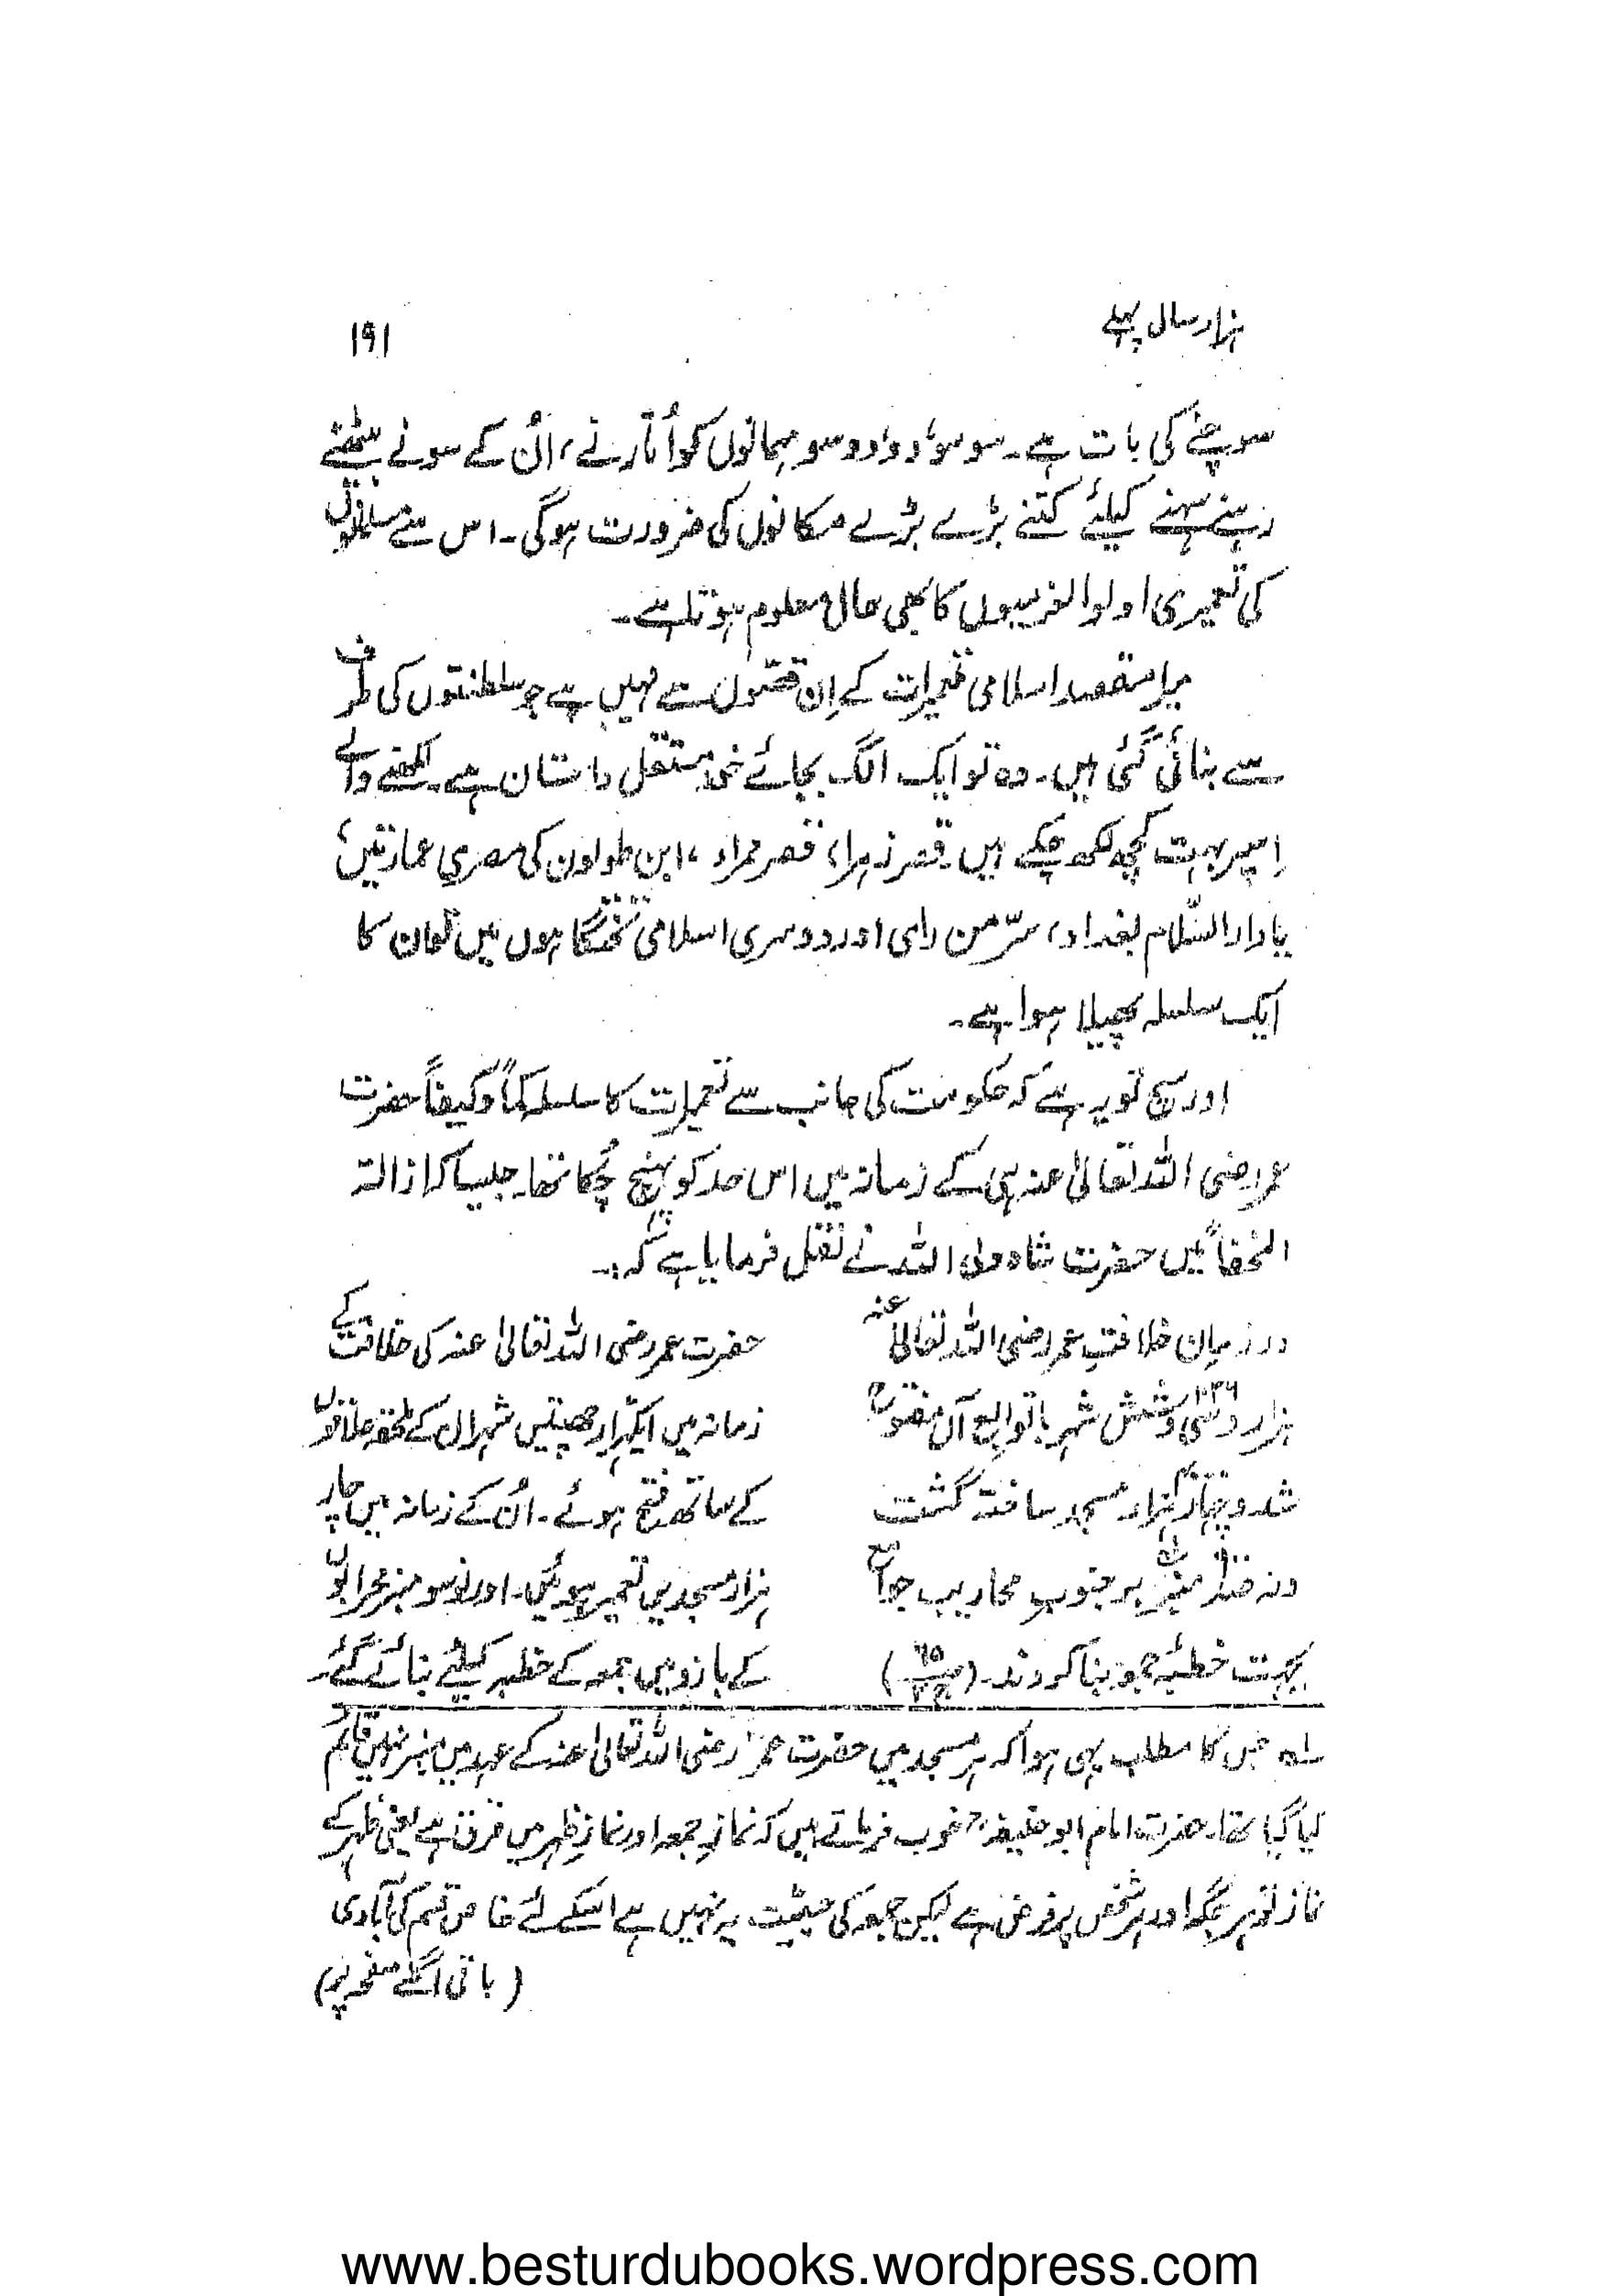 ہزار سال پہلے
۱۹۱
سوچنے کی بات ہے۔ سو سو، دو، دو سو مہمانوں کو اُتارنے، اُن کے سونے بیٹھنے
رہنے سہنے کیلئے کتنے بڑے بڑے مکانوں کی ضرورت ہوگی۔ اس سے مسلمانوں
کی تعمیری اولوالعزمیوں کا بھی حال معلوم ہوتا ہے۔
میرا مقصد اسلامی تعمیرات کے اِن قصّوں سے نہیں ہے جو سلطنتوں کی طرف
سے بنائی گئی ہیں۔ وہ تو ایک الگ بجائے خود مستقل داستان ہے۔ لکھنے والے
اِسپر بہت کچھ لکھ چکے ہیں قصر زہرا، قصر حمراء، ابن طولون کی مصری عمارتیں،
یا دارالسّلام بغداد، سرّ من رأی اور دوسری اسلامی تختگاہوں میں تو ان کا
ایک سلسلہ پھیلا ہوا ہے۔
اور سچ تو یہ ہے کہ حکومت کی جانب سے تعمیرات کا سلسلہ کماً و کیفاً حضرت
عمر رضی اللہ تعالیٰ عنہ ہی کے زمانہ میں اس حد کو پہنچ چُکا تھا۔ جیسا کہ ازالۃ
الخفاً میں حضرت شاہ ولی اللہ نے نقل فرمایا ہے کہ :۔
در زمانِ خلافتِ عمر رضی اللہ تعالیٰ عنہ
ہزار و سی و شش ۱۰۳۶ شہر با توابع آن مفتوح
شد و چہار ہزار مسجد ساختہ گشت
و نہ صد منبر بر جنوب محاریب جوامع
بجہت خطبۂ جمعہ بنا کردند۔
حضرت عمر رضی اللہ تعالیٰ عنہ کی خلافت کے
زمانہ میں ایکہزار چھتیس شہر ان کے ملحقہ علاقوں
کے ساتھ فتح ہوئے۔ اُن کے زمانہ میں چار
ہزار مسجدیں تعمیر ہوئیں۔ اور نو سو منبر محرابوں
کے بازو میں جمعہ کے خطبہ کیلئے بنائے گئے۔
لہ جس کا مطلب یہی ہوا کہ ہر مسجد میں حضرت عمر رضی اللہ تعالیٰ عنہ کے عہد میں منبر نہیں قائم
کیا گیا تھا۔ حضرت امام ابو حنیفہؒ خوب فرماتے ہیں کہ نمازِ جمعہ اور نمازِ ظہر میں فرق ہے یعنی ظہر کے
نماز تو ہر جگہ اور ہر شخص پر فرض ہے لیکن جمعہ کی حیثیت یہ نہیں ہے اسکے لئے خاص قسم کی آبادی
(باقی اگلے صفحہ پر)
www.besturdubooks.wordpress.com